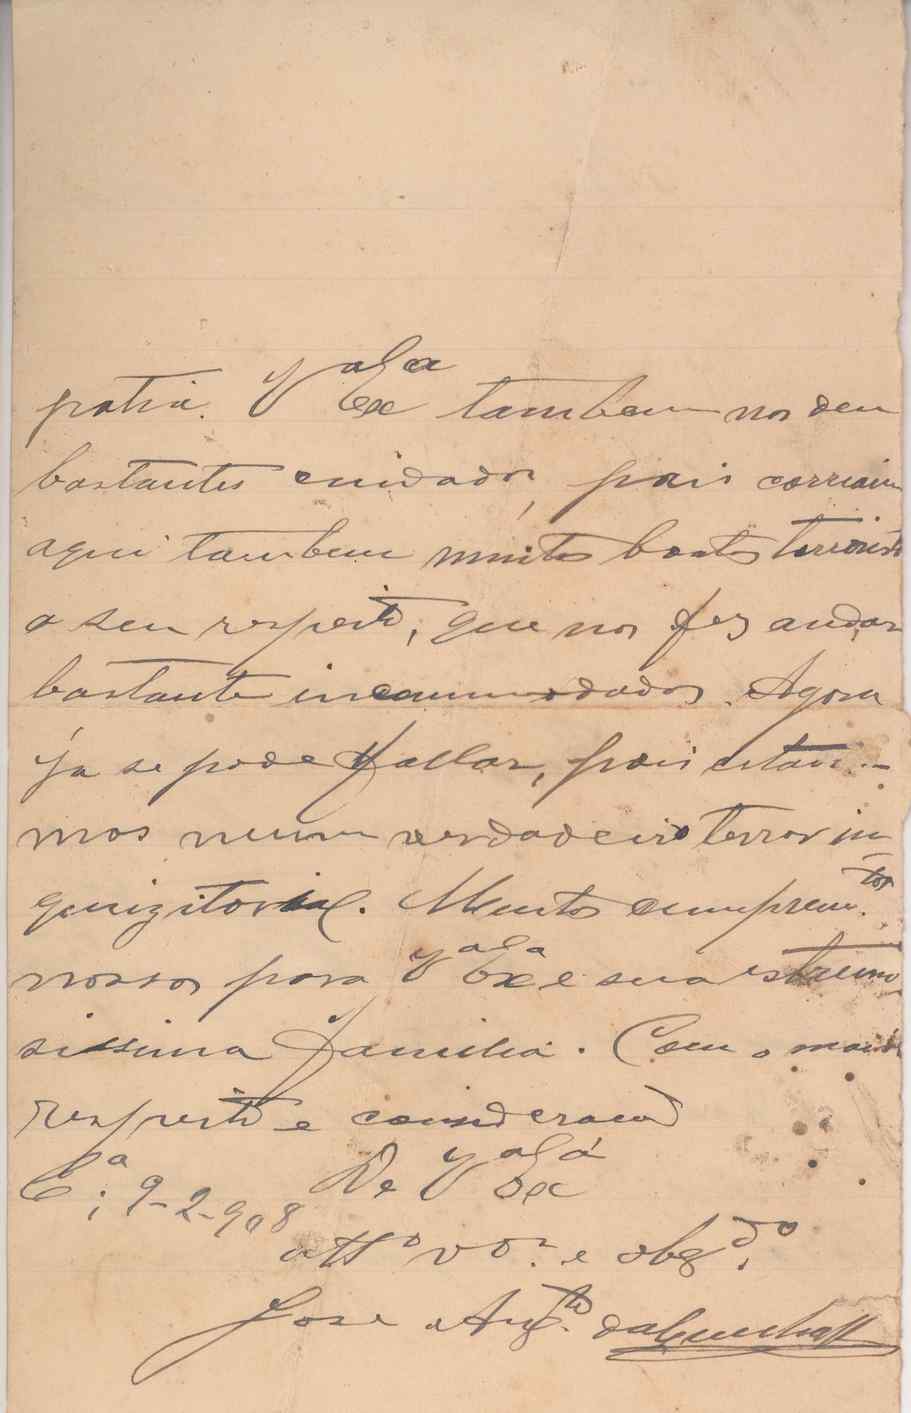 patria. V.ª Ex.ª tambem nos deu
bastantes cuidados, pois corriam
aqui tambem muitos boatos
a seu respeito, que nos fez andar
bastante incommodados. Agora
ja se pode fallar, pois estava-
mos num verdadeiro terror in-
quizitorial. Muitos cumprim.tos
nossos para V.ª Ex.ª e sua estremo
sissima familia. Com o maior
respeito e consideracaõ
De V.ª Ex.ª
C.ª; 9-2-908
att.º v.or e obg.do
Jose Aug.to da Cunha